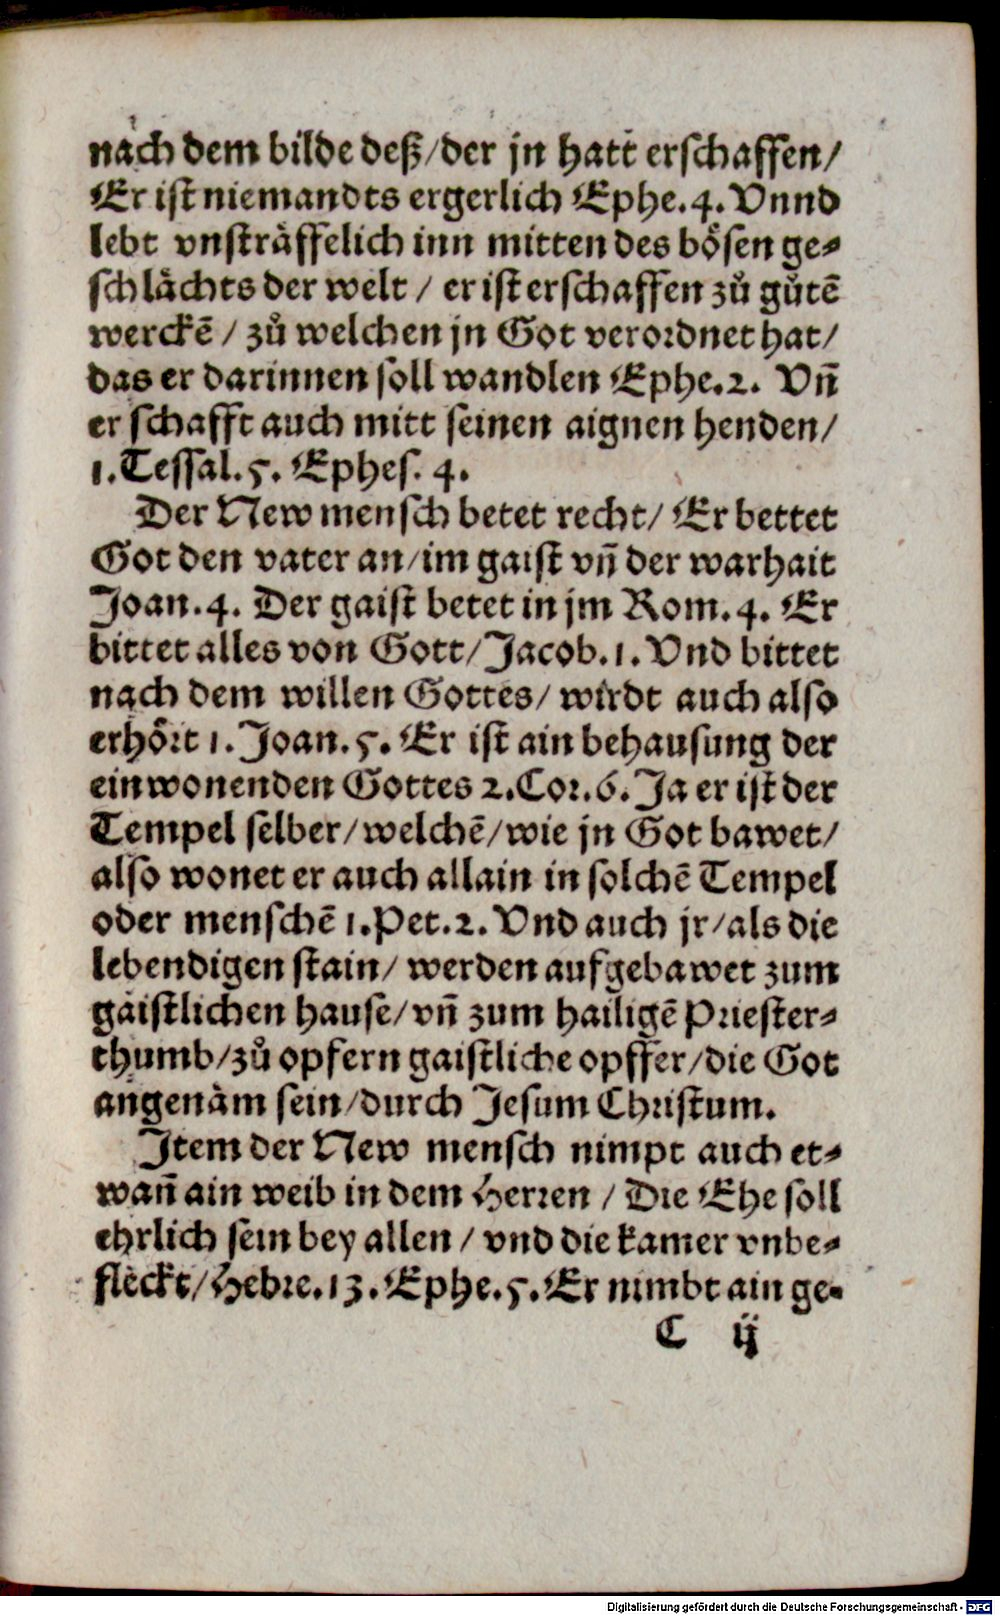 nach dem bilde deß/der jn hatt erschaffen/
Er ist niemandts ergerlich Ephe.4. Vnnd
lebt vnsträffelich inn mitten des bösen ge-
schlächts der welt / er ist erschaffen zů gůtē
werckē / zů welchen jn Got verordnet hat/
das er darinnen soll wandlen Ephe.2. Vn̄
er schafft auch mitt seinen aignen henden/
1.Tessal.5. Ephes. 4.
Der New mensch betet recht/ Er bettet
Got den vater an/im gaist vn̄ der warhait
Joan.4. Der gaist betet in jm Rom.4. Er
bittet alles von Gott/Jacob.1. Vnd bittet
nach dem willen Gottes/ wirdt auch also
erhört 1. Joan.5. Er ist ain behausung der
einwonenden Gottes 2.Cor.6. Ja er ist der
Tempel selber/welchē/wie jn Got bawet/
also wonet er auch allain in solchē Tempel
oder menschē 1.Pet.2. Vnd auch jr/als die
lebendigen stain/ werden aufgebawet zum
gaistlichen hause/vn̄ zum hailigē Priester-
thumb/zů opfern gaistliche opffer/die Got
angenäm sein/durch Jesum Christum.
Item der New mensch nimpt auch et-
wan̄ ain weib in dem Herren / Die Ehe soll
ehrlich sein bey allen / vnd die kamer vnbe-
fleckt/Hebre.13. Ephe.5. Er nimbt ain ge-
C ij
Digitalisierung gefördert durch die Deutsche Forschungsgemeinschaft - DFG